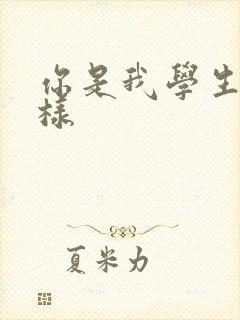 你是我學生
樣
夏米力